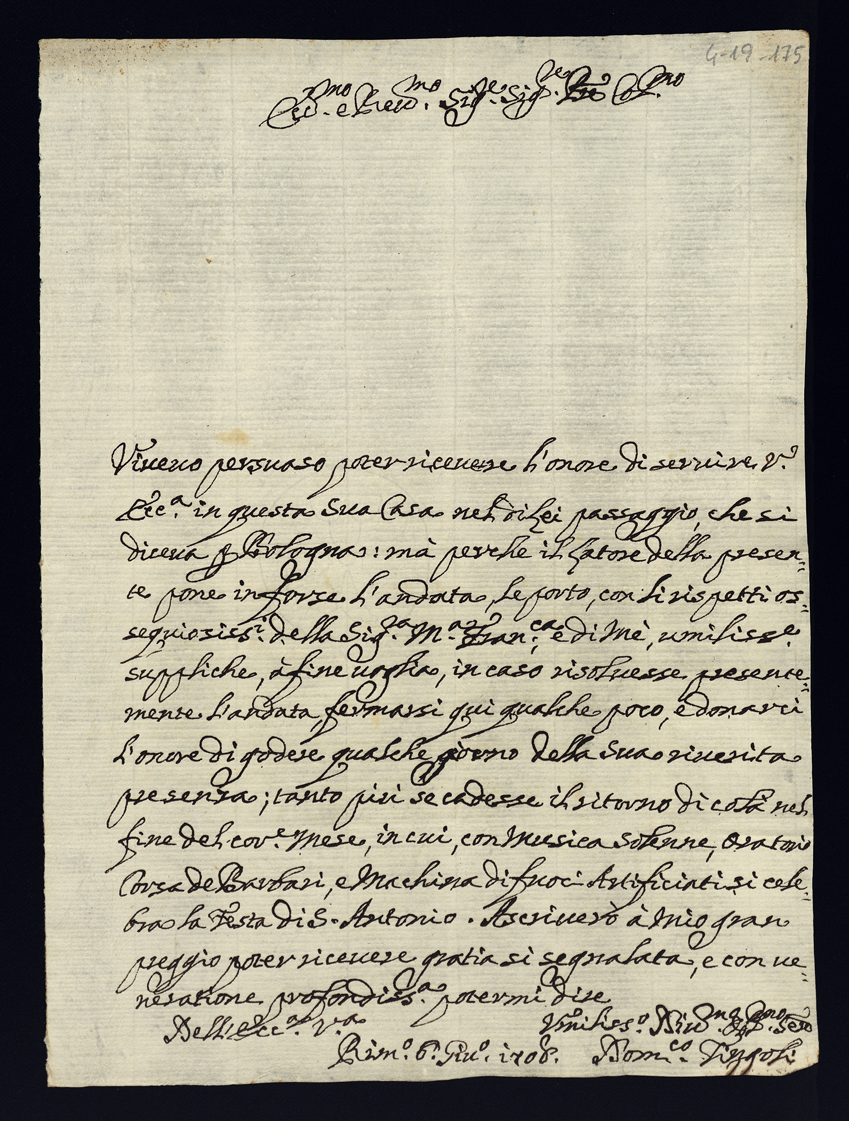 4-19-175
Ecc.mo e Rev.mo Sig.re Sig.re Pne Col.mo
Vivevo persuaso poter ricevere l'onore di servire V.
Ecc.a in questa Sua Casa nel di lei passaggio, che si
diceva p Bologna: mà perche il latore della presen=
te pone in forse l'andata, le porto, con li rispetti os=
sequiosiss.i della Sig.ra M.a Fran.ca e di Mè, umiliss.e
suppliche, à fine voglia, in caso risolvesse presente=
mente l'andata, fermarsi qui qualche poco, e donarci
l'onore di godere qualche giorno della Sua riverita
presenza; tanto più se cadesse il ritorno di costà nel
fine del cor.e Mese, in cui, con Musica Solenne, Oratorio
Corsa de Barbari, e Machina di fuoci Artificiati si cele=
bra la Festa di S. Antonio. Ascriverò à Mio gran
preggio poter ricevere gratia si segnalata, e con ve=
neratione profondiss.a potermi dire
Dell'Ecc.a V.a
Umiliss.o Div.mo Obb.mo Se.re
Rim.o 6. Giu.o 1708. Dom.co Tingoli